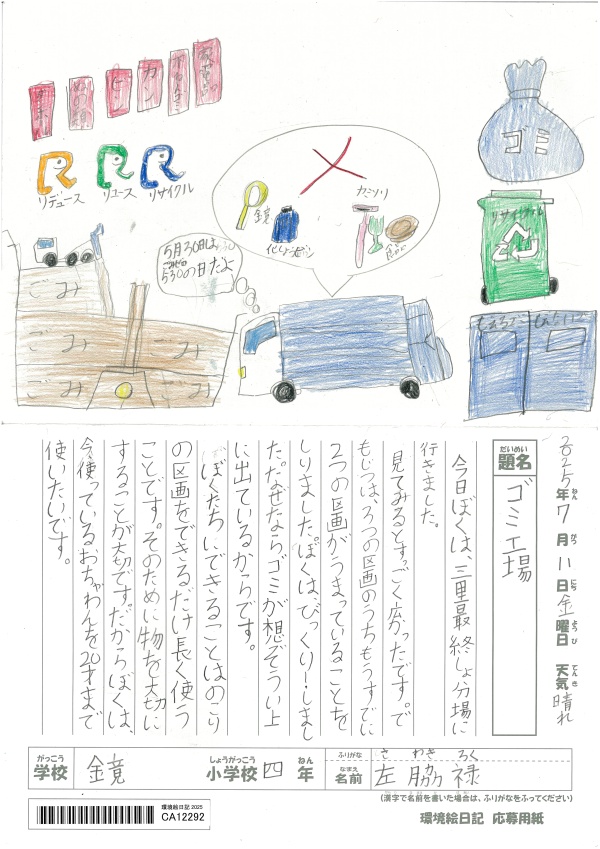 缶
ビン
カン
リデュース
リユース
リサイクル
鏡
カミソリ
5月30日は
530の日だよ
ゴミ
リサイクル
ごみ
ごみ
ごみ
ごみ
ごみ
2025年7月11日金曜日 天気 晴れ
ねん
がつ
にち
ようび
てんき
だいめい
題名
ゴミ工場
今日ぼくは、三里最終しょ分場に
行きました。
見てみるとすっごく広かったです。で
もじつは、3つの区画のうちもうすでに
2つの区画がうまっていることを
しりました。ぼくは、びっくり!しまし
た。なぜならゴミが想ぞうい上
に出ているからです。
ぼくたちにできることはのこり
の区画をできるだけ長く使う
ことです。そのために物を大切に
することが大切です。だからぼくは、
今使っているおちゃわんを20才まで
使いたいです。
がっこう
学校
鏡
しょうがっこう
小学校
四
ねん
年
ふりがな
なまえ
名前
さ わき ろく
左 脇 禄
(漢字で名前を書いた場合は、ふりがなをふってください)
環境絵日記 2025
CA12292
環境絵日記 応募用紙